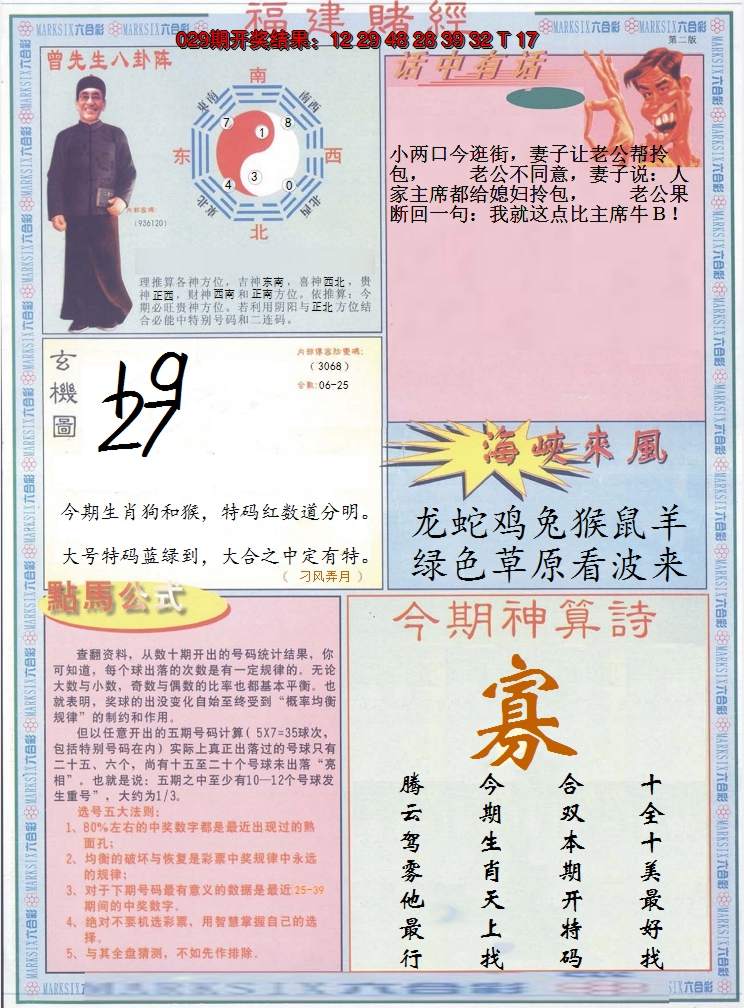 福建賭經
029期开奖结果：12 29 48 28 39 32 T 17
第二版
MARKSIX六合彩
曾先生八卦阵
南
東南
南西
7
1
8
东
西
4
3
0
東北
北西
北
内部密碼:
(936120)
理推算各神方位，吉神东南，喜神西北，贵
神正西，财神西南和正南方位。依推算：今
期必旺贵神方位。若利用阴阳与正北方位结
合必能中特别号码和二连码。
话中有话
小两口今逛街，妻子让老公帮拎
包， 老公不同意，妻子说：人
家主席都给媳妇拎包， 老公果
断回一句：我就这点比主席牛B！
玄機圖
内部傳密除密碼:
(3068)
合数:06-25
今期生肖狗和猴，特码红数道分明。
大号特码蓝绿到，大合之中定有特。
（ 刁风弄月 ）
海峡來風
龙蛇鸡兔猴鼠羊
绿色草原看波来
點馬公式
查翻资料，从数十期开出的号码统计结果，你
可知道，每个球出落的次数是有一定规律的。无论
大数与小数，奇数与偶数的比率也都基本平衡。也
就表明，奖球的出没变化自始至终受到“概率均衡
规律”的制约和作用。
但以任意开出的五期号码计算( 5X7=35球次，
包括特别号码在内) 实际上真正出落过的号球只有
二十五、六个，尚有十五至二十个号球未出落“亮
相”。也就是说：五期之中至少有10—12个号球发
生重号”，大约为1/3。
选号五大法则:
1、80%左右的中奖数字都是最近出现过的熟
面孔；
2、均衡的破坏与恢复是彩票中奖规律中永远
的规律；
3、对于下期号码最有意义的数据是最近25-39
期间的中奖数字。
4、绝对不要机选彩票，用智慧掌握自己的选
择。
5、与其全盘猜测，不如先作排除。
今期神算詩
寡
十全十美最好找
合双本期开特码
今期生肖天上找
腾云驾雾他最行